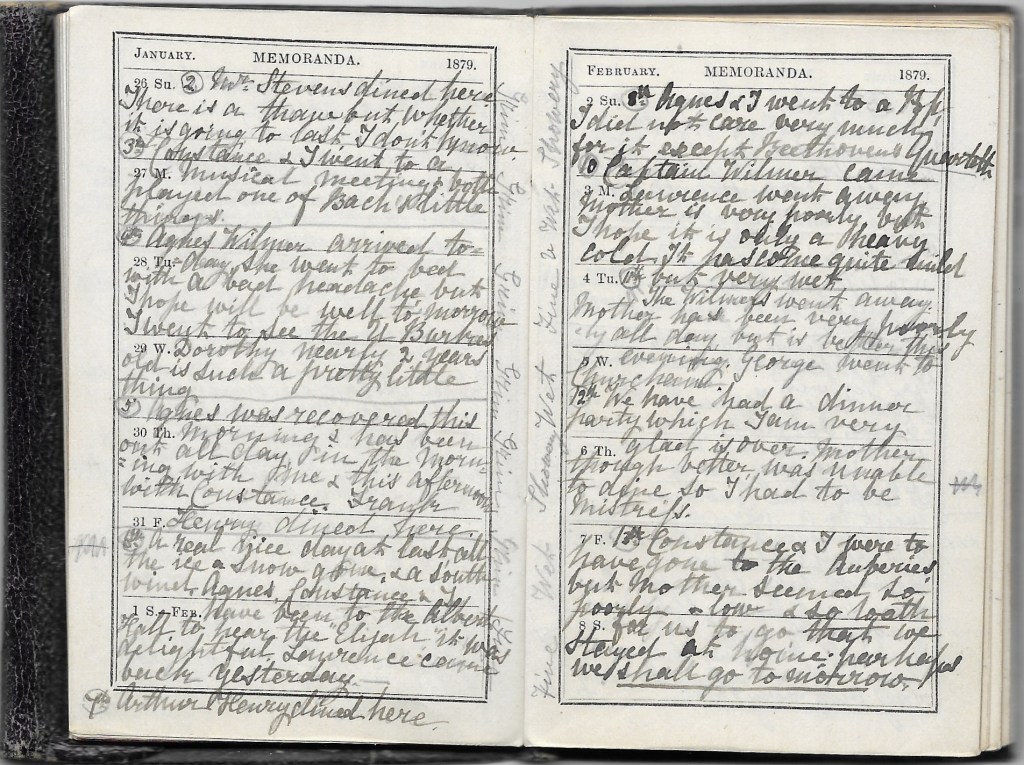 JANUARY. MEMORANDA. 1879.
26 Su. (2) Mrs. Stevens dined here
There is a thaw but whether
it is going to last I dont know.
3rd Constance & I went to a
27 M. Musical meeting: both
played one of Bach's little
things.
4th Agnes Wilmer arrived to=
28 Tu. =day, she went to bed
with a bad headache but
I hope will be well to-morrow
I went to see the
29 W. Dorothy nearly 2 years
old is such a pretty little
thing
5) Agnes was recovered this
30 Th. Morning & has been
out all day in the Morn
=ing with me & this afternoon
with Constance. Frank
31 F. Henry dined here.
6th A real nice day at last, all
the ice & snow gone, & a south
wind. Agnes, Constance & I
1 S.–FEB. have been to the Albert
Hall to hear the Elijah it was
delightful. Lawrence came
back yesterday.
7th Arthur Henry dined here.
Fine Wet Showery Wet Fine & Wet Showery
FEBRUARY. MEMORANDA. 1879.
2 Su. 8th Agnes & I went to a Pop,
I did not care very much
for it except Beethovens Quartett
10 Captain Wilmer came
3 M. Lawrence went away
Mother is very poorly, but
I hope it is only a heavy
cold It has come quite mild
4 Tu. 11th but very wet.
The Wilmers went away.
Mother has been very poorly
all day, but is better this
5 W. evening. George went to
12th We have had a dinner
party which I am very
6 Th. glad is over. Mother
though better, was unable
to dine so I had to be
Mistress.
7 F. 13th Constance & I were to
have gone to the
but Mother seemed so
poorly & low & so loath
8 S. for us to go that we
stayed at home. perhaps
we shall go to morrow.